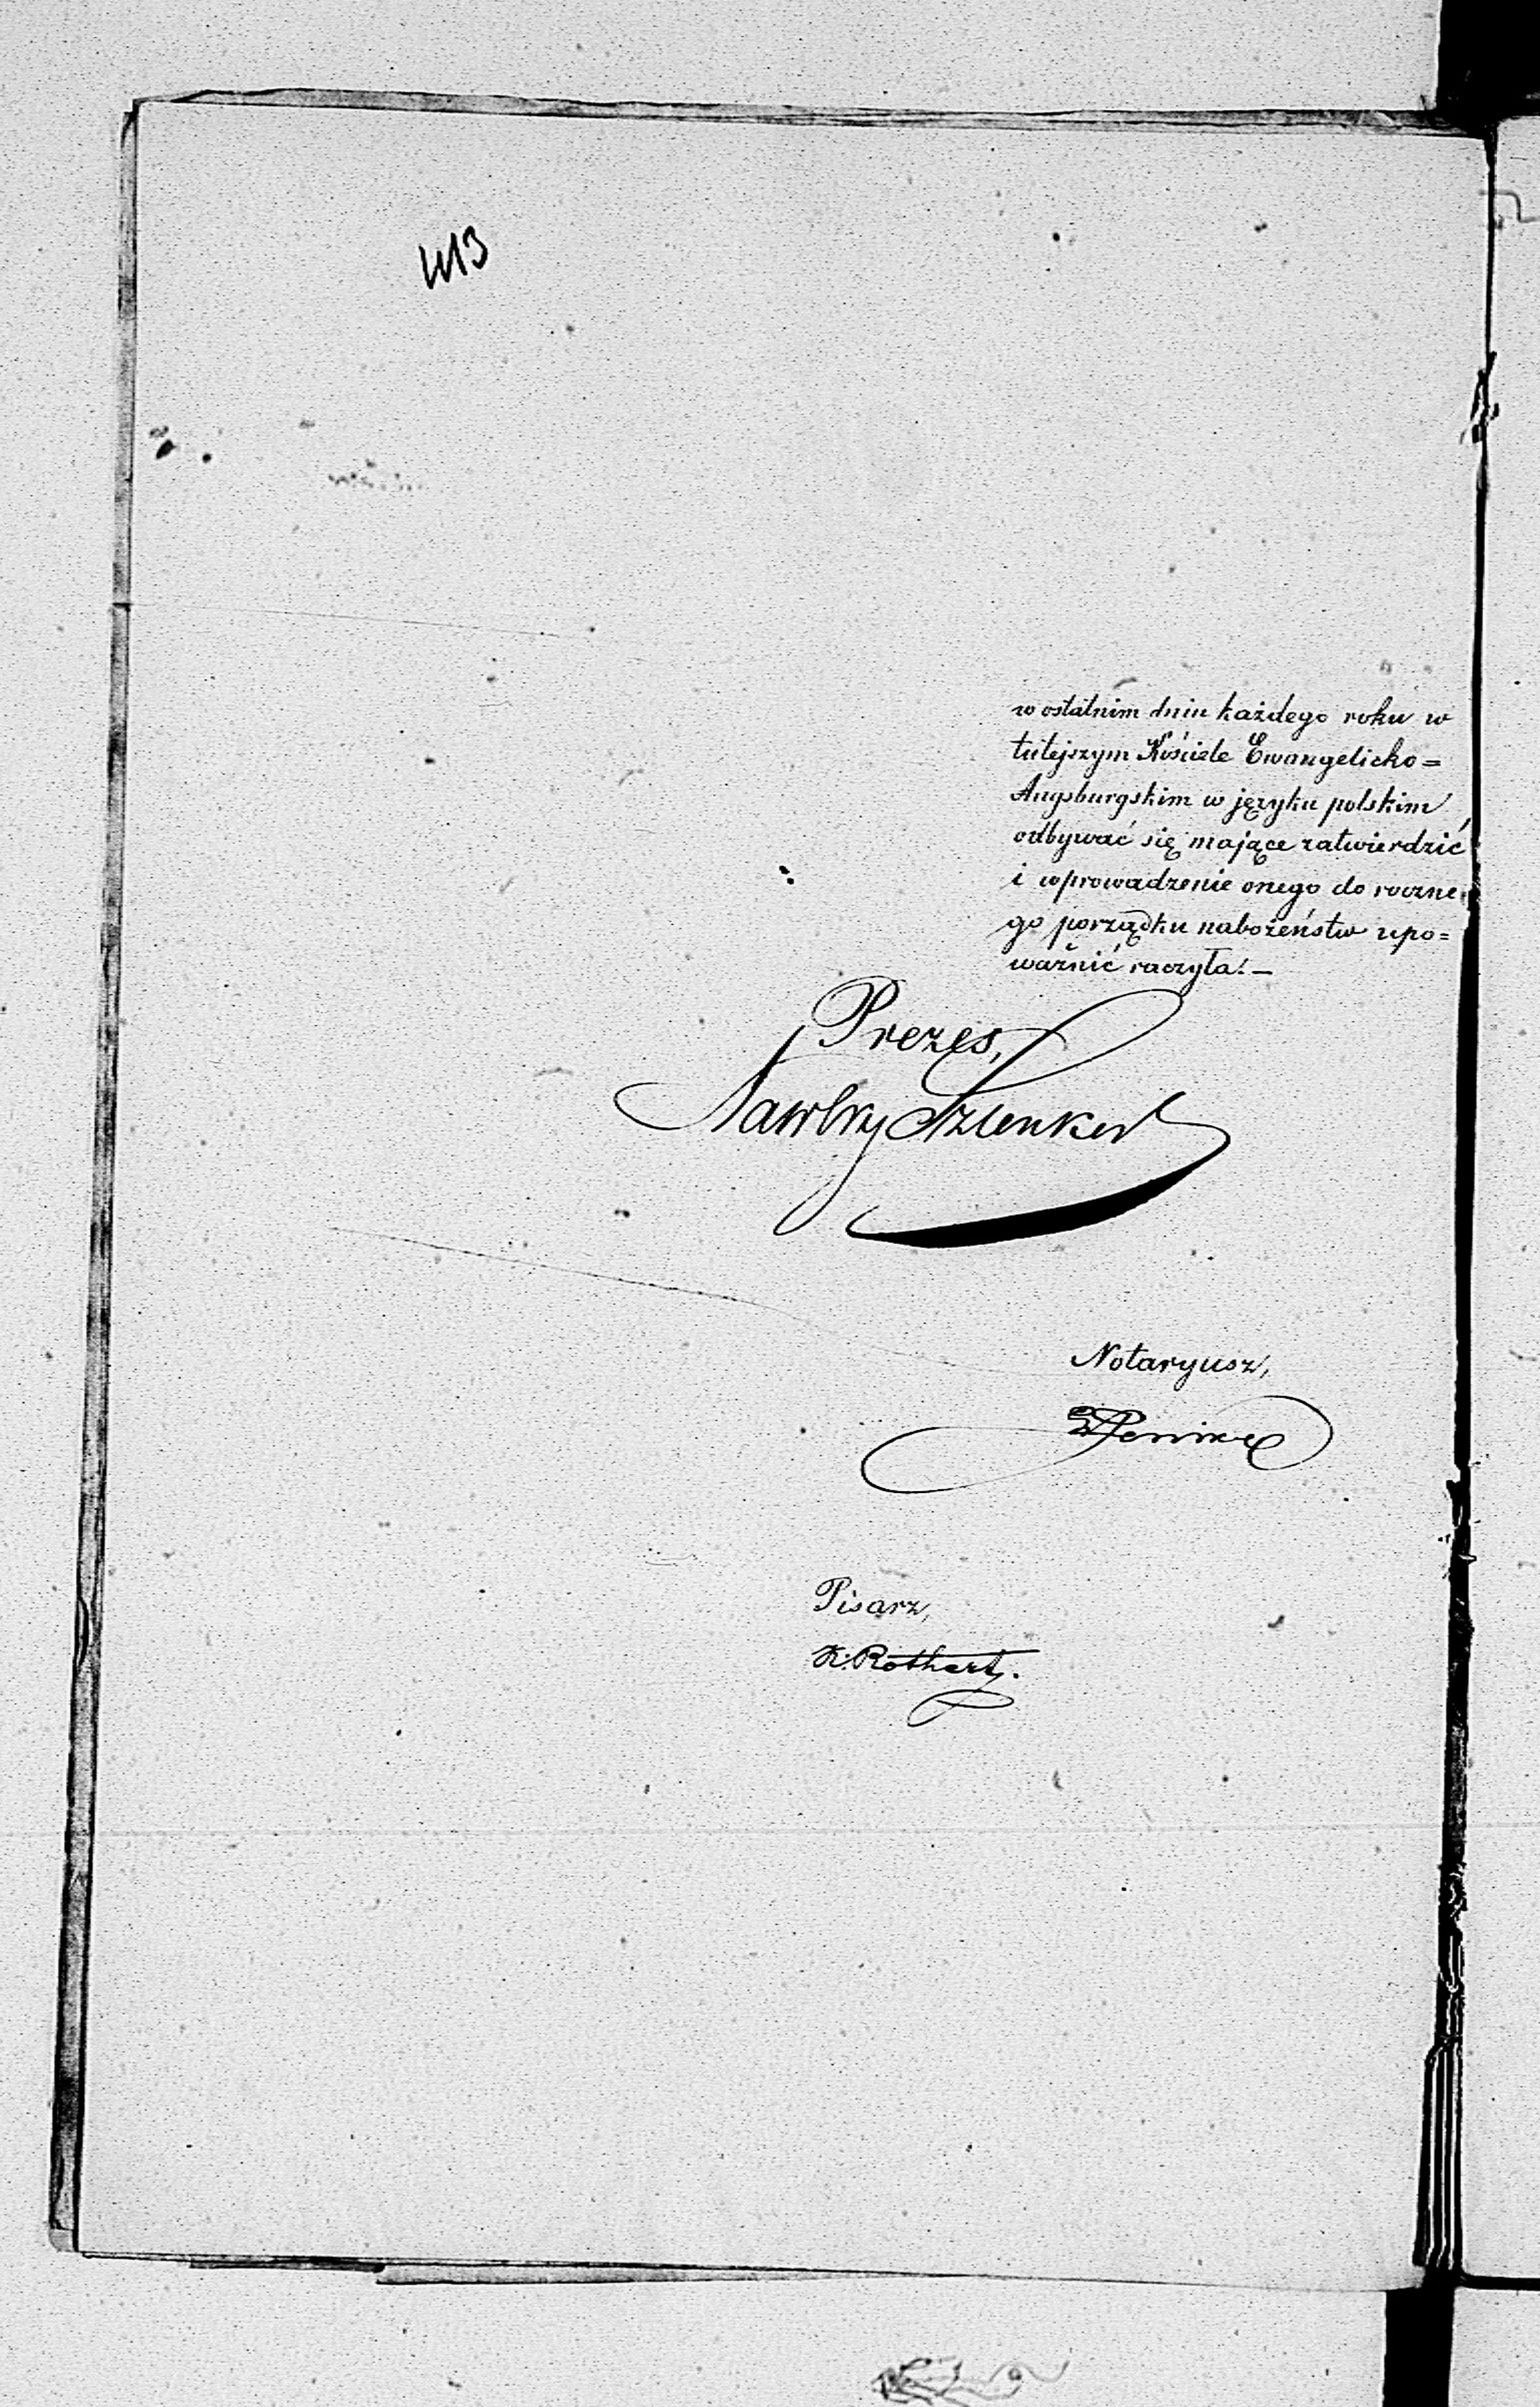 413
w ostatnim dniu każdego roku w
tutejszym Kościele Ewangelicko=
Augsburgskim w języku polskim
odbywać się mające zatwierdzić
i wprowadzenie onego do roczne
go porządku nabożeństw upo=
ważnić raczyła.—
Prezes,
Szlenker
Notaryusz,
Pisarz,
K. Rothert.